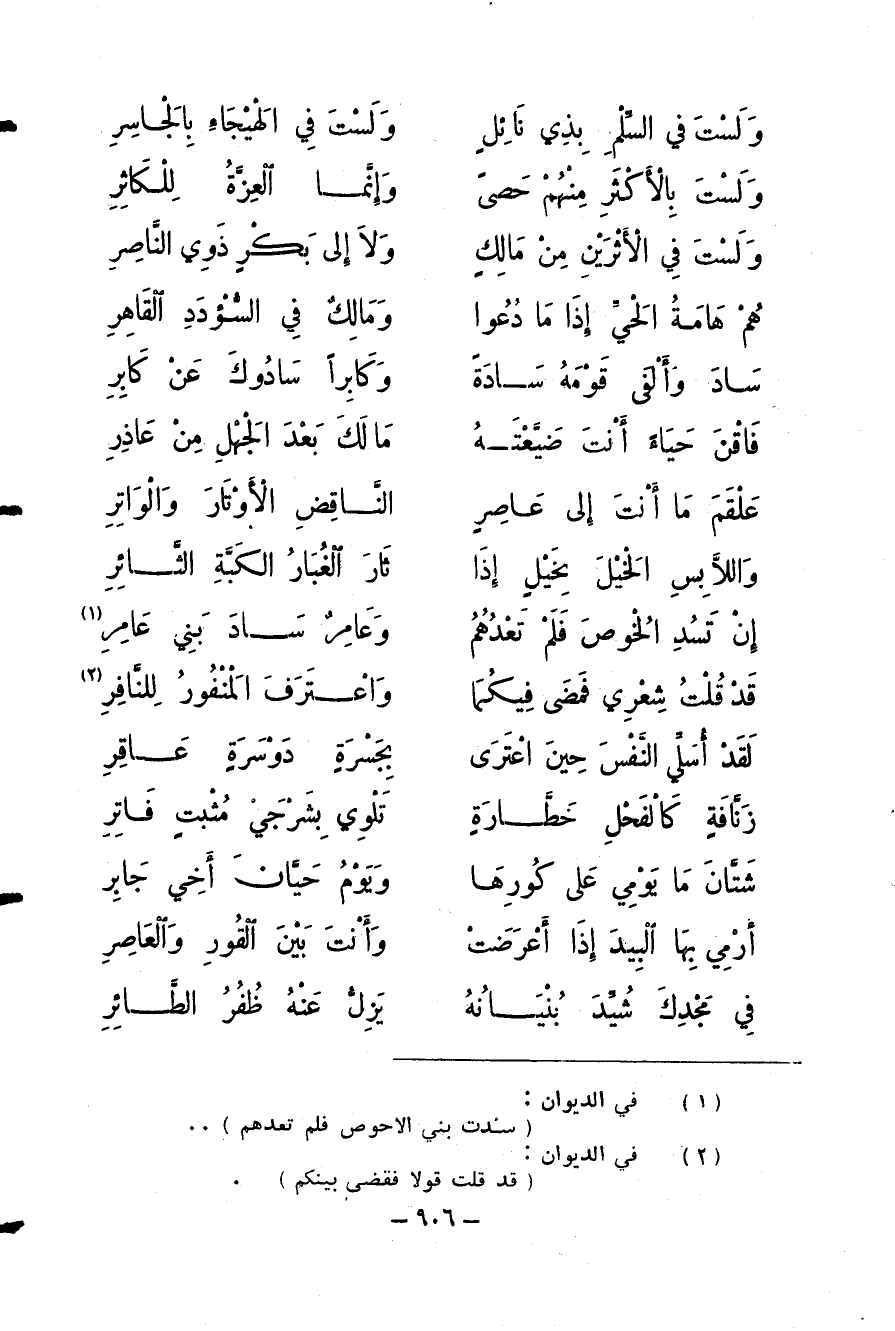 وَلَسْتَ في السِّلْمِ بِذِي نَائِلٍ وَلَسْتَ فِي الَهيْجَاءِ بِالَجْاسِرِ
وَلَسْتَ بِالْأَكْثَرِ مِنْهُمْ حَصىً وَإِنَّمَا ٱلعِزَّةُ لِلْكَاثِرِ
وَلَسْتَ فِي الْأَثْرَيْنِ مِنْ مَالِكٍ وَلاَ إلى بَكْرٍ ذَوِي النَّاصِرِ
هُمْ هَامَةُ الَحْيِّ إِذَا مَا دُعُوا وَمَالِكٌ فِي السُّوْدَدِ ٱلْقَاهِرِ
سَادَ وَأَلْفَى قَوْمَهُ سَادَةً وَكَابِراً سَادُوكَ عَنْ كَابِرِ
فَاقْنَ حَيَاءَ أَنْتَ ضَيَّعْتَهُ مَالَكَ بَعْدَ الَجْهْلِ مِنْ عَاذِرِ
عَلْقَمَ مَا أَنْتَ إلى عَامِرٍ النَّاقِضِ الْأَوْتَارَ وَالْوَاتِرِ
وَاللاَّبِسِ الَخْيْلَ بِخَيْلٍ إِذَا ثَارَ ٱلْغُبَارُ الكَبَّةِ الثَّائِرِ
إِنْ تَسُدِ الُحْوصَ فَلَمْ تَعْدُهُمْ وَعَامِرٌ سَادَ بَنِي عَامِرِ (١)
قَدْ قُلْتُ شِعْرِي فَمَضَى فِيكُمَا وَاعْتَرَفَ الَمْنْفُورُ لِلنَّافِرِ (٢)
لَقَدْ أُسَلِّي النَّفْسَ حِينَ اعْتَرَى بِجَسْرَةٍ دَوْسَرَةٍ عَاقِرِ
زَنَّافَةٍ كَالْفَحْلِ خَطَّارَةٍ تَلْوِي بِشَرْجَيْ مُثْبتٍ فَاتِرِ
شَتَّانَ مَا يَوْمِي عَلى كُورِهَا وَيَوْمُ حَيَّانَ أَخِي جَابِرِ
أَرْمِي بِهَا ٱلْبِيدَ إِذَا أَعْرَضَتْ وَأَنْتَ بَيْنَ ٱلْقُورِ وَٱلْعَاصِرِ
فِي مَجْدِكَ شُيِّدَ بُنْيَانُهُ يَزِلُّ عَنْهُ ظُفُرُ الطَّائِرِ
(١) في الديوان :
( سدت بني الاحوص فلم تعدهم ) ..
(٢) في الديوان :
( قد قلت قولا فقضى بينكم ) .
— ٩٠٦ —